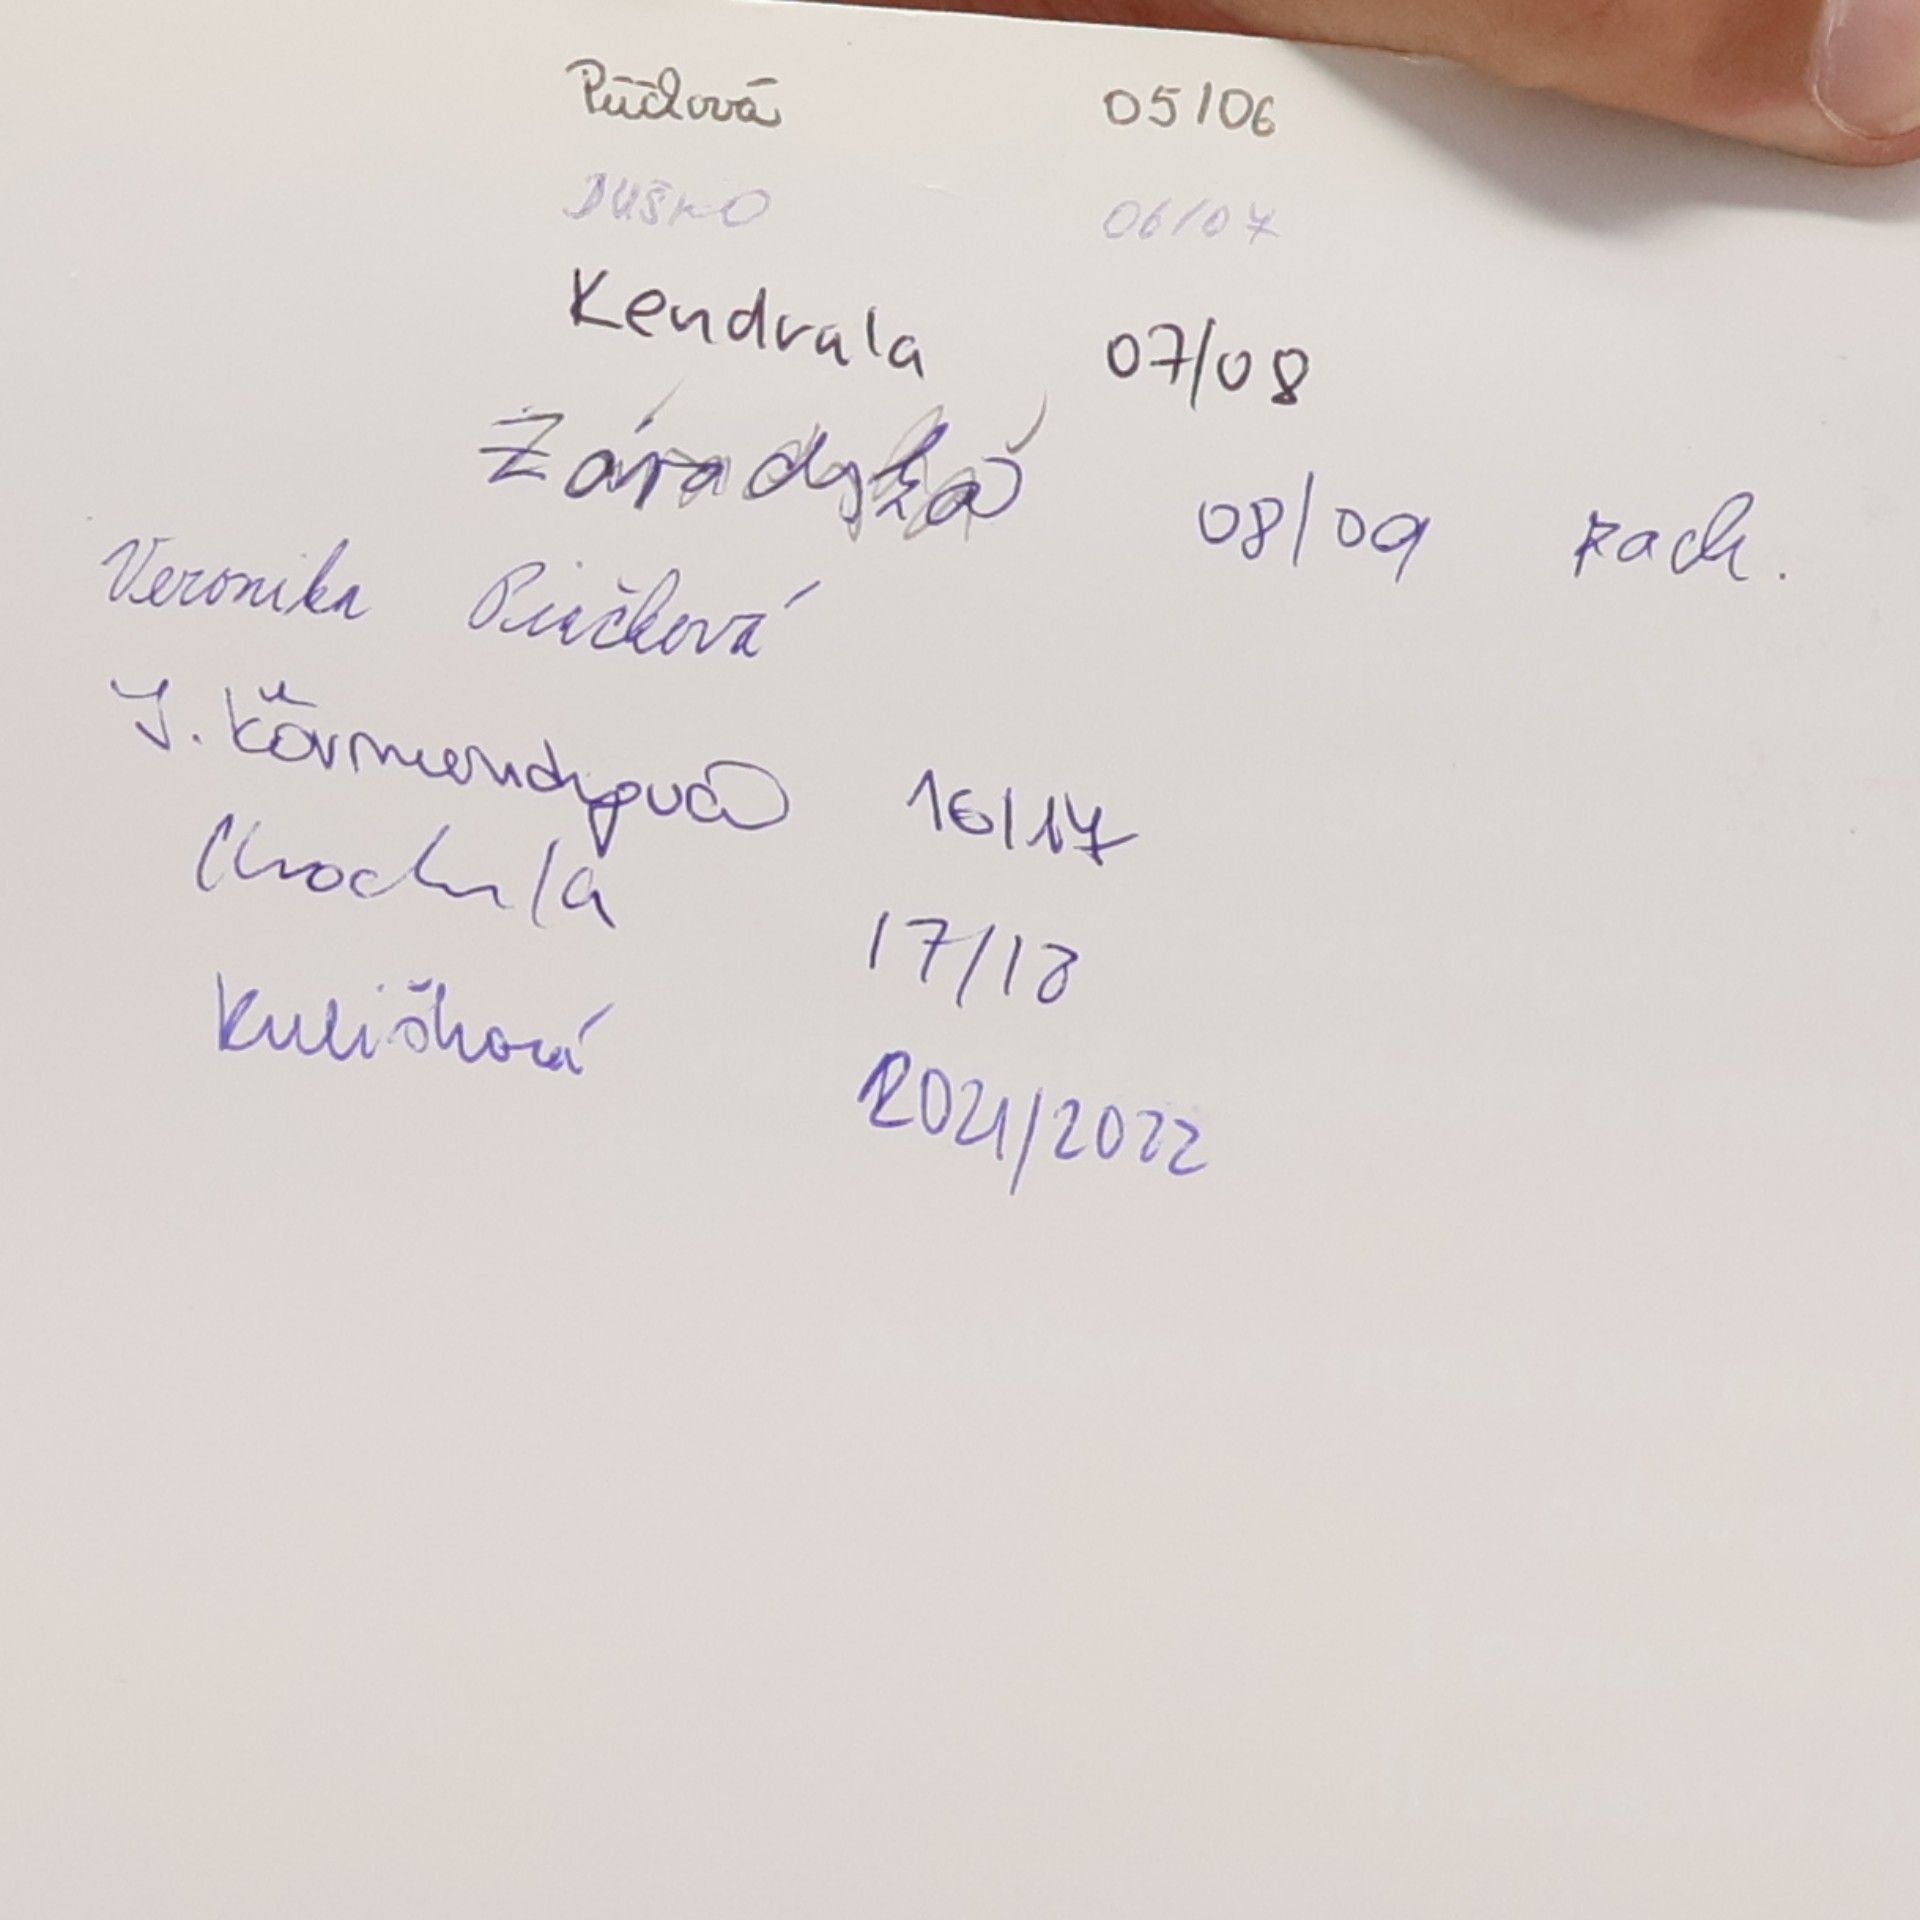 05/06
DUŠKO 06/07
Kendrala 07/08
08/09
Veronika
J. Körmendyová 16/17
Chochula 17/18
Kulišková 2021/2022